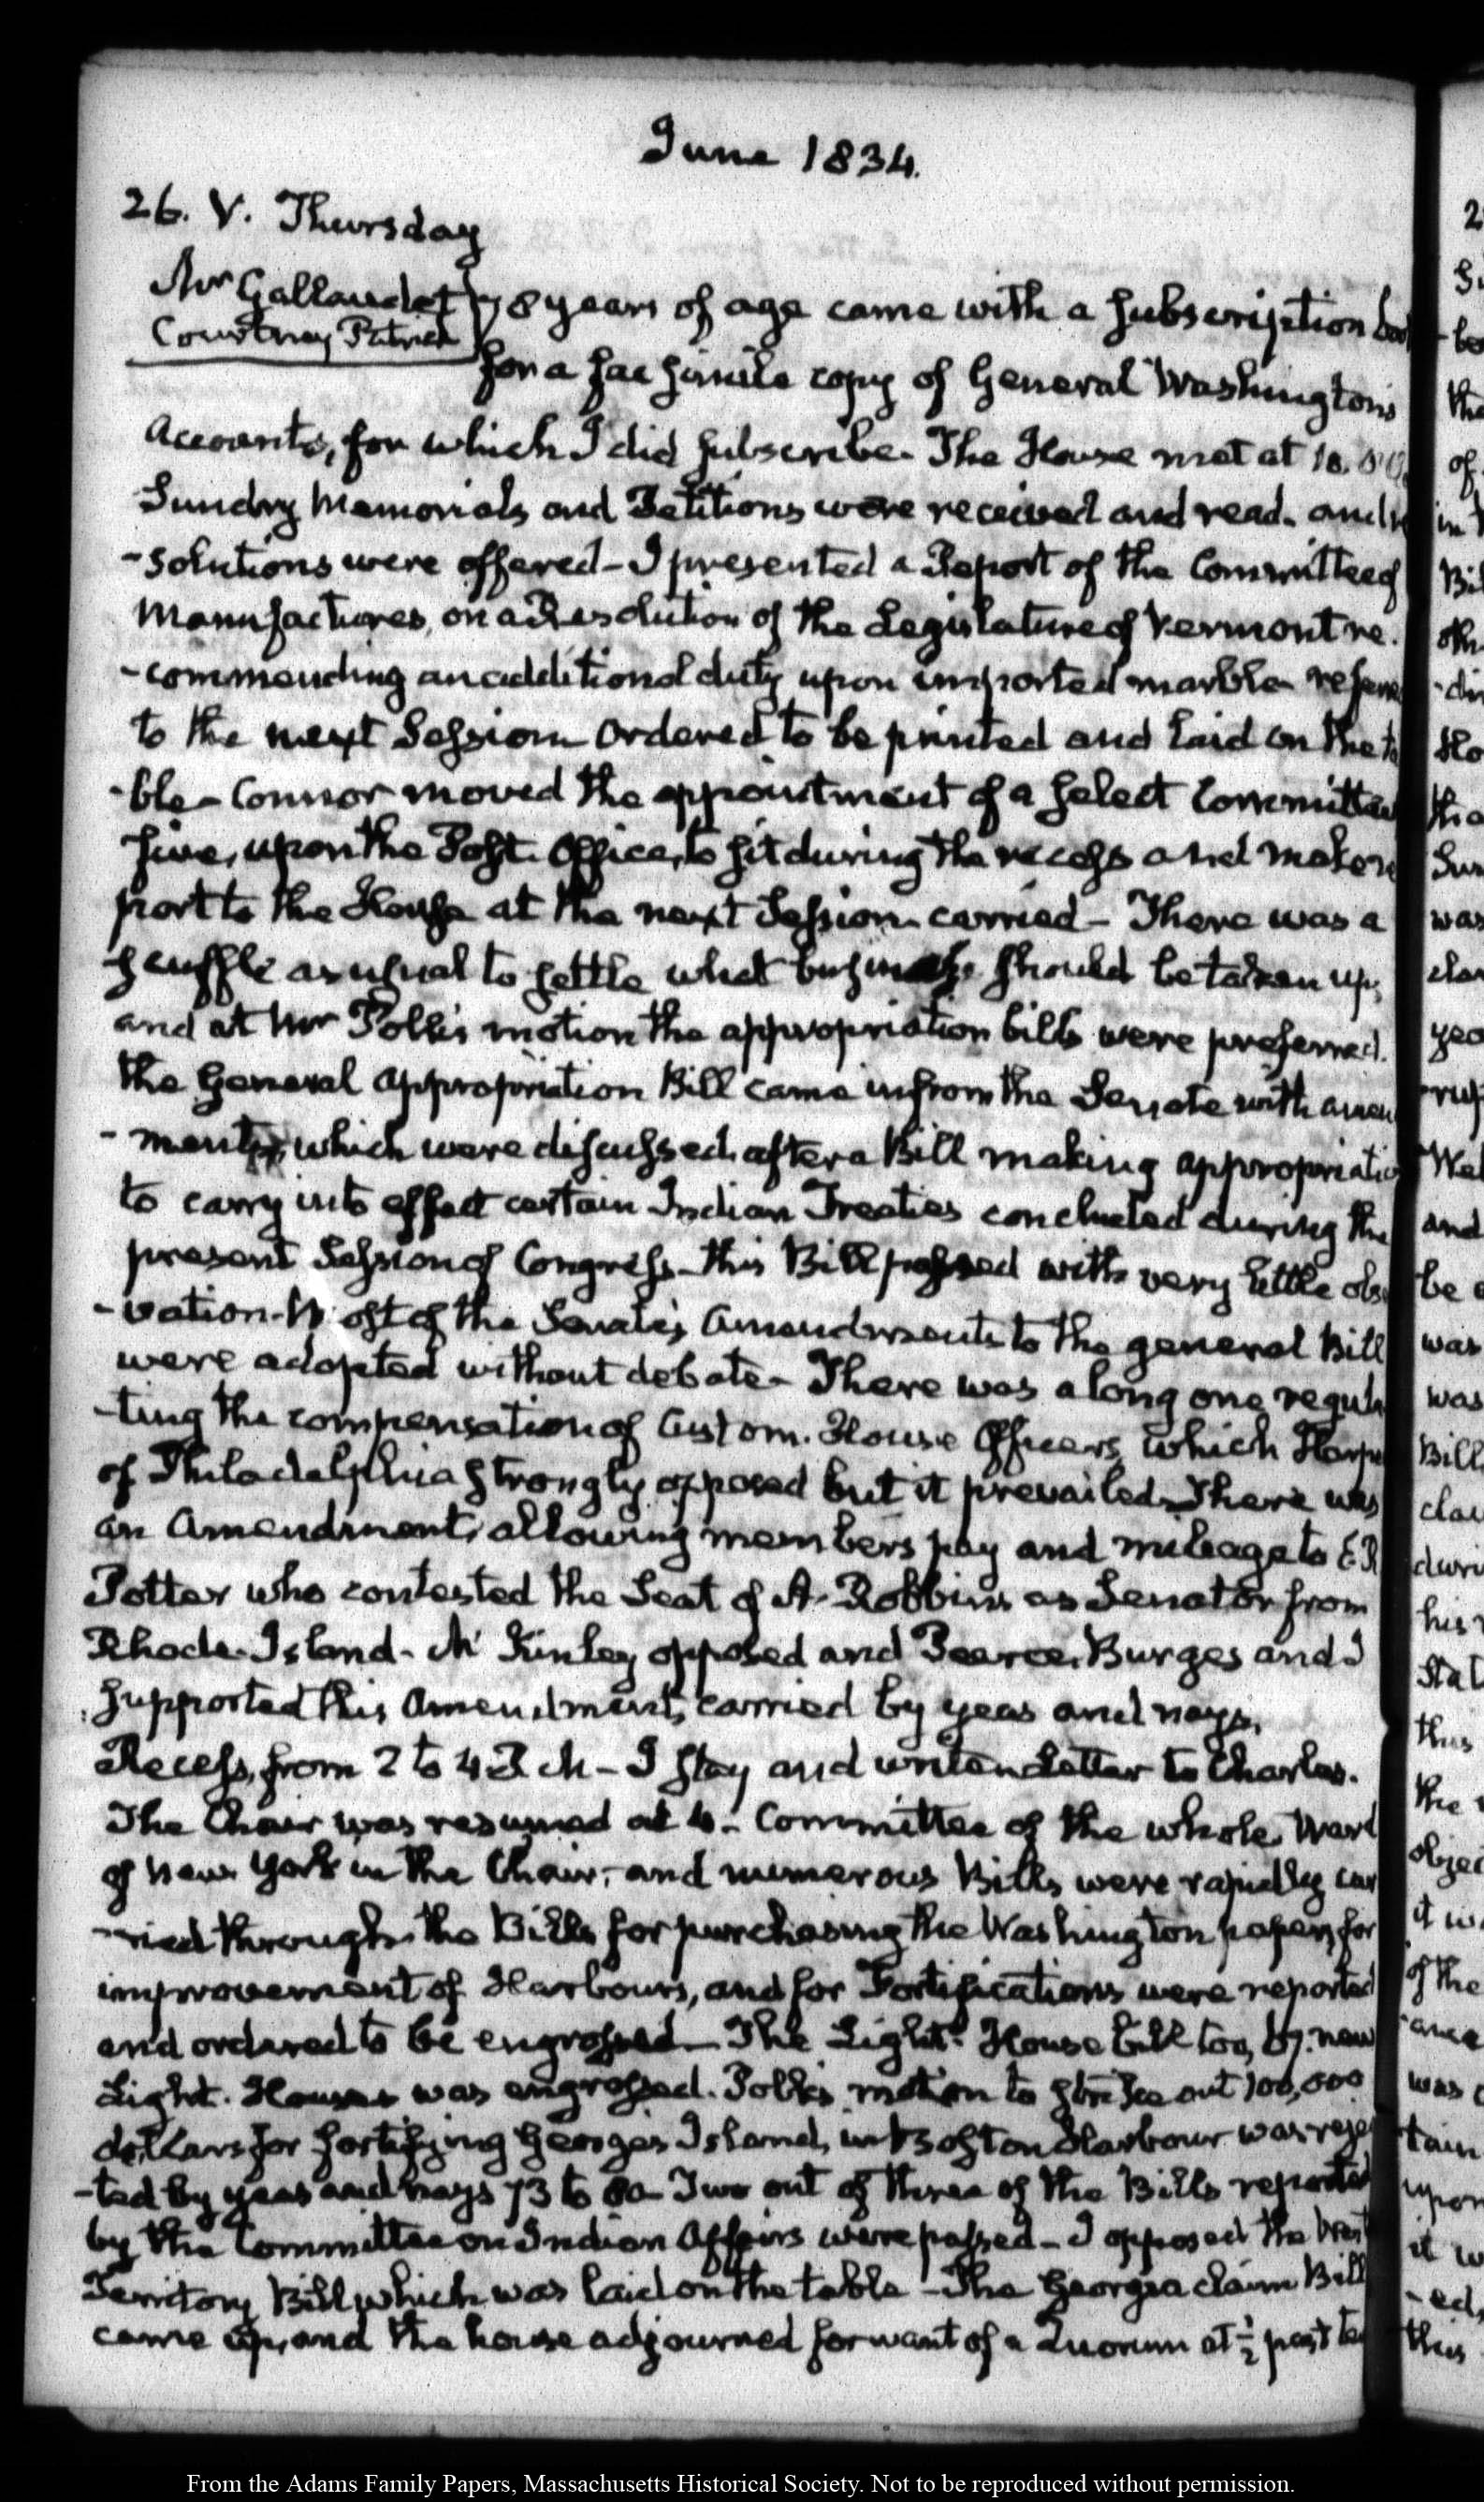 June 1834.
26. V. Thursday
Mr Gallaudet
Courtney Patrick
78 years of age came with a subscription
for a facsimile copy of General Washington's
Accounts, for which I did subscribe. The House met at 10.
Sundry Memorials and Petitions were received and read. and
-solutions were offered - I presented a Report of the Committee of
Manufactures, on a Resolution of the Legislature of Vermont re-
-commending an additional duty upon imported marble
to the next Session Ordered to be printed and laid on the ta
-ble - Connor moved the appointment of a select Committee
five, upon the Post-Office, to sit during the recess and make re
port to the House at the next Session. carried - There was a
scuffle as usual to settle what business should be taken up,
and at Mr Polk's motion the appropriation bills were preferred.
The General Appropriation Bill came in from the Senate with amen
-ments, which were discussed after a Bill making appropriatio
to carry into effect certain Indian Treaties concluded during the
present Session of Congress - this Bill passed with very little obs
-vation. Most of the Senate's Amendments to the general Bill
were adopted without debate - There was a long one regula
-ting the compensation of Custom-House Officers, which Harpe
of Philadelphia strongly opposed but it prevailed. There was
an Amendment, allowing members pay and mileage to E R
Potter who contested the Seat of A. Robbins as Senator from
Rhode-Island - McKinley opposed and Pearce, Burges and I
supported this Amendment, carried by yeas and nays.
Recess, from 2 to 4 P.M - I stay and write a letter to Charles.
The Chair was resumed at 4 - Committee of the whole, Ward
of New York in the Chair, and numerous Bills were rapidly car
-ried through. the Bills for purchasing the Washington papers, for
improvement of Harbours, and for Fortifications were reported
and ordered to be engrossed - The Light-House bill too, by new
Light-Houses was engrossed. Polk's motion to strike out 100,000
dollars for fortifying Georges Island, in Boston Harbour was rejec
-ted by yeas and nays 73 to 80 - Two out of three of the Bills reported
by the Committee on Indian Affairs were passed - I opposed the West
Territory Bill which was laid on the table - The Georgia claim Bill
came up, and the house adjourned for want of a Quorum at ½ past ten
From the Adams Family Papers, Massachusetts Historical Society. Not to be reproduced without permission.